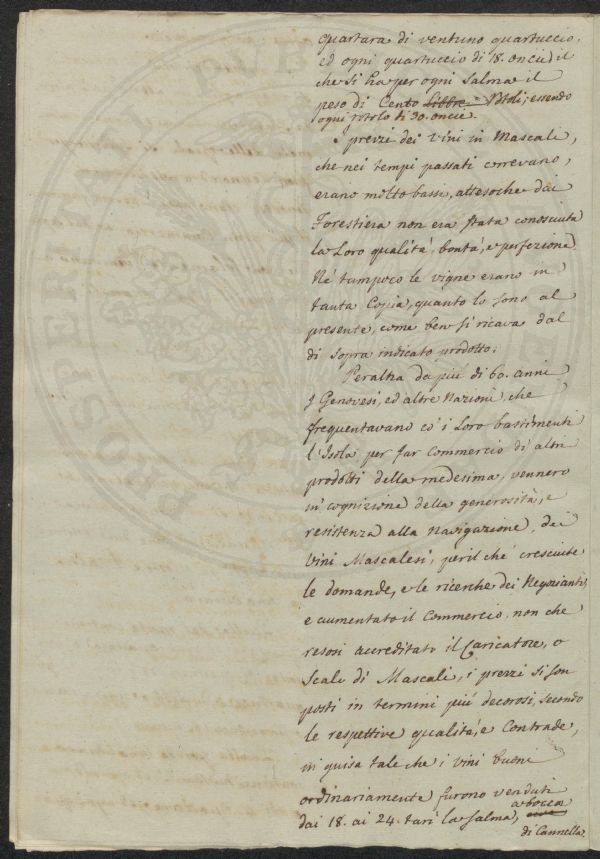 quartara di ventuno quartuccio,
ed ogni quartuccio di 18. oncie) il
che si ha per ogni salma il
peso di Cento Libbre Rotoli; essendo
ogni rotolo di 30. oncie.
I prezzi dei vini in Mascali,
che nei tempi passati correvano,
erano molto bassi, attesoche dai
Forestiera non era stata conosciuta
la Loro qualità, bontà, e perfezione
Ne' tampoco le vigne erano in
tanta Copia, quanto lo sono al
presente, come ben si ricava dal
di sopra indicato prodotto;
Peraltra da più di 60. anni
J Genovesi, ed altre Nazioni, che
frequentavano co' i Loro bastimenti
l'Isola per far Commercio di altri
prodotti della medesima, vennero
in cognizione della generosità, e
resistenza alla Navigazione, dei
Vini Mascalesi, per il ché cresciute
le domande, e le ricerche dei Negozianti,
e aumentato il Commercio, non che
resosi accreditato il Caricatore, o
Scalo di Mascali, i prezzi si son
posti in termini più decorosi, secondo
le respettive qualità, e Contrade,
in guisa tale che i vini buoni
ordinariamente furono venduti
dai 18. ai 24. tarì la salma, a bocca
di Cannella
PROSPERITA
PUB